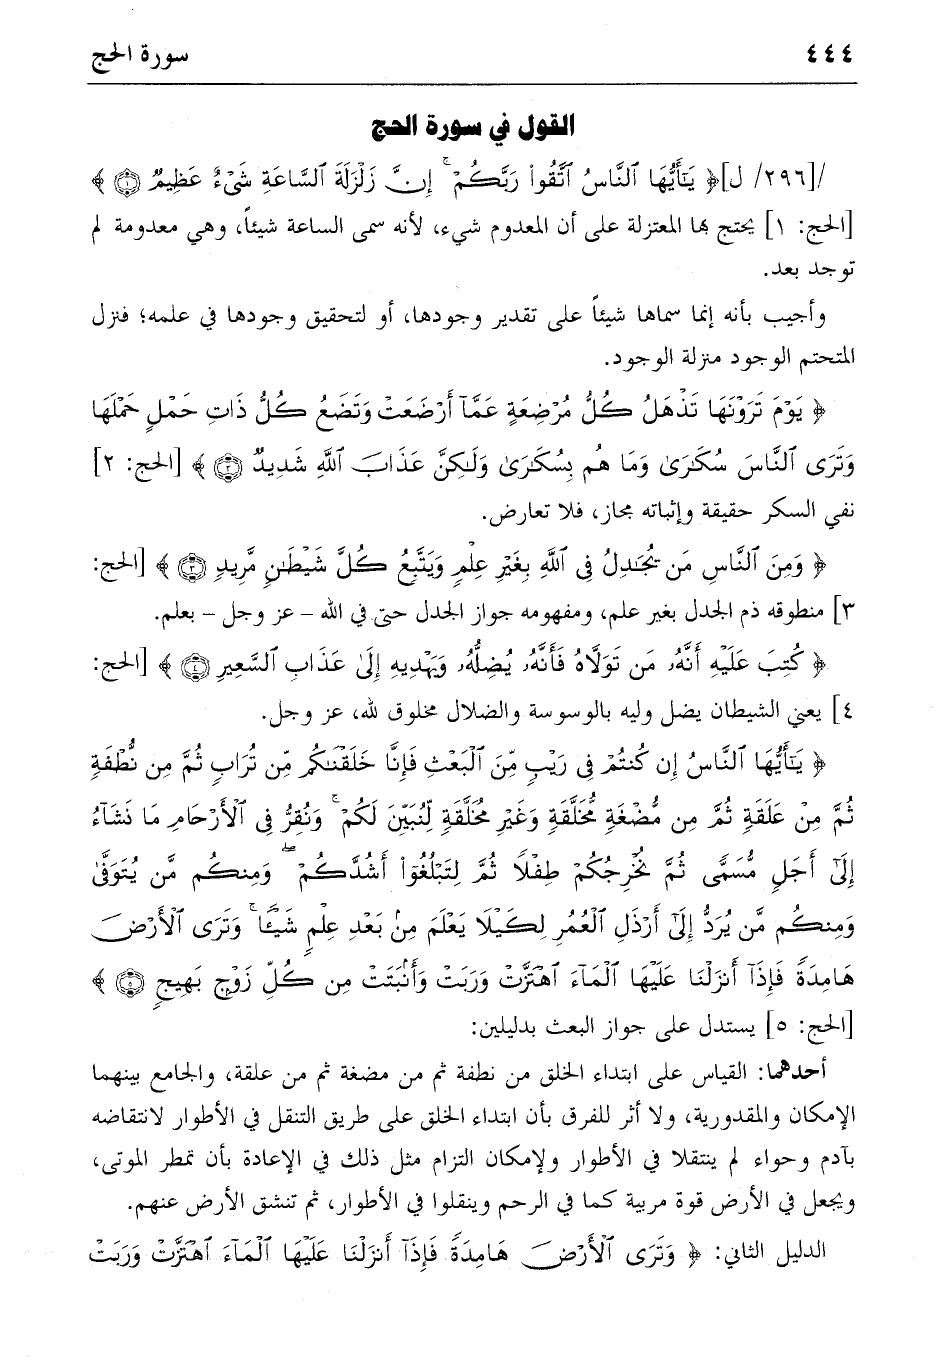 ٤٤٤ سورة الحج
القول في سورة الحج
/[٢٩٦/ ل]﴿ يَٰٓأَيُّهَا ٱلنَّاسُ ٱتَّقُوا۟ رَبَّكُمْ ۚ إِنَّ زَلْزَلَةَ ٱلسَّاعَةِ شَىْءٌ عَظِيمٌ ١ ﴾
[الحج: ١] يحتج بها المعتزلة على أن المعدوم شيء، لأنه سمى الساعة شيئاً، وهي معدومة لم
توجد بعد.
وأجيب بأنه إنما سماها شيئاً على تقدير وجودها، أو لتحقيق وجودها في علمه؛ فنزل
المتحتم الوجود منزلة الوجود.
﴿ يَوْمَ تَرَوْنَهَا تَذْهَلُ كُلُّ مُرْضِعَةٍ عَمَّآ أَرْضَعَتْ وَتَضَعُ كُلُّ ذَاتِ حَمْلٍ حَمْلَهَا
وَتَرَى ٱلنَّاسَ سُكَٰرَىٰ وَمَا هُم بِسُكَٰرَىٰ وَلَٰكِنَّ عَذَابَ ٱللَّهِ شَدِيدٌ ٢ ﴾ [الحج: ٢]
نفي السكر حقيقة وإثباته مجاز، فلا تعارض.
﴿ وَمِنَ ٱلنَّاسِ مَن يُجَٰدِلُ فِى ٱللَّهِ بِغَيْرِ عِلْمٍ وَيَتَّبِعُ كُلَّ شَيْطَٰنٍ مَّرِيدٍ ٣ ﴾ [الحج:
٣] منطوقه ذم الجدل بغير علم، ومفهومه جواز الجدل حتى في الله – عز وجل – بعلم.
﴿ كُتِبَ عَلَيْهِ أَنَّهُۥ مَن تَوَلَّاهُ فَأَنَّهُۥ يُضِلُّهُۥ وَيَهْدِيهِ إِلَىٰ عَذَابِ ٱلسَّعِيرِ ٤ ﴾ [الحج:
٤] يعني الشيطان يضل وليه بالوسوسة والضلال مخلوق لله، عز وجل.
﴿ يَٰٓأَيُّهَا ٱلنَّاسُ إِن كُنتُمْ فِى رَيْبٍ مِّنَ ٱلْبَعْثِ فَإِنَّا خَلَقْنَٰكُم مِّن تُرَابٍ ثُمَّ مِن نُّطْفَةٍ
ثُمَّ مِنْ عَلَقَةٍ ثُمَّ مِن مُّضْغَةٍ مُّخَلَّقَةٍ وَغَيْرِ مُخَلَّقَةٍ لِّنُبَيِّنَ لَكُمْ ۚ وَنُقِرُّ فِى ٱلْأَرْحَامِ مَا نَشَآءُ
إِلَىٰٓ أَجَلٍ مُّسَمًّى ثُمَّ نُخْرِجُكُمْ طِفْلًا ثُمَّ لِتَبْلُغُوٓا۟ أَشُدَّكُمْ ۖ وَمِنكُم مَّن يُتَوَفَّىٰ
وَمِنكُم مَّن يُرَدُّ إِلَىٰٓ أَرْذَلِ ٱلْعُمُرِ لِكَيْلَا يَعْلَمَ مِنۢ بَعْدِ عِلْمٍ شَيْـًٔا ۚ وَتَرَى ٱلْأَرْضَ
هَامِدَةً فَإِذَآ أَنزَلْنَا عَلَيْهَا ٱلْمَآءَ ٱهْتَزَّتْ وَرَبَتْ وَأَنۢبَتَتْ مِن كُلِّ زَوْجٍۭ بَهِيجٍ ٥ ﴾
[الحج: ٥] يستدل على جواز البعث بدليلين:
أحدهما: القياس على ابتداء الخلق من نطفة ثم من مضغة ثم من علقة، والجامع بينهما
الإمكان والمقدورية، ولا أثر للفرق بأن ابتداء الخلق على طريق التنقل في الأطوار لانتقاضه
بآدم وحواء لم ينتقلا في الأطوار ولإمكان التزام مثل ذلك في الإعادة بأن تمطر الموتى،
ويجعل في الأرض قوة مربية كما في الرحم وينقلوا في الأطوار، ثم تنشق الأرض عنهم.
الدليل الثاني: ﴿ وَتَرَى ٱلْأَرْضَ هَامِدَةً فَإِذَآ أَنزَلْنَا عَلَيْهَا ٱلْمَآءَ ٱهْتَزَّتْ وَرَبَتْ